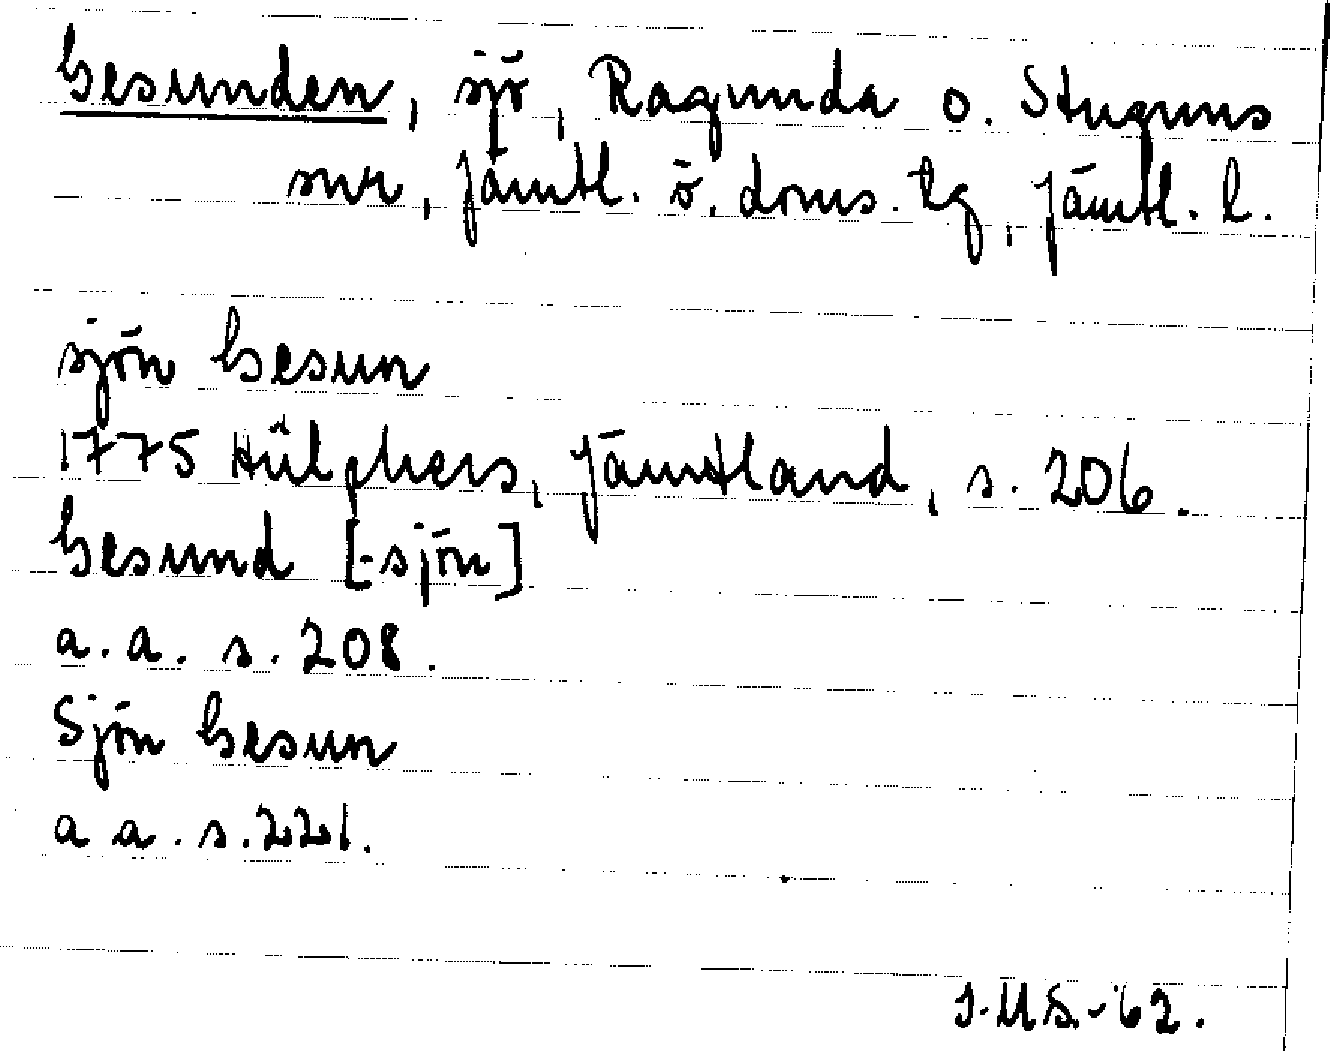 Gesunden, sjö, Ragunda o. Stuguns
snr, Jämtl. ö. doms. tg, Jämtl. l.
sjön Gesun
1775 Hülphers, Jämtland, s. 206.
Gesund [-sjön]
a. a. s. 208.
Sjön Gesun
a a. s. 221.
I.MS.-62.